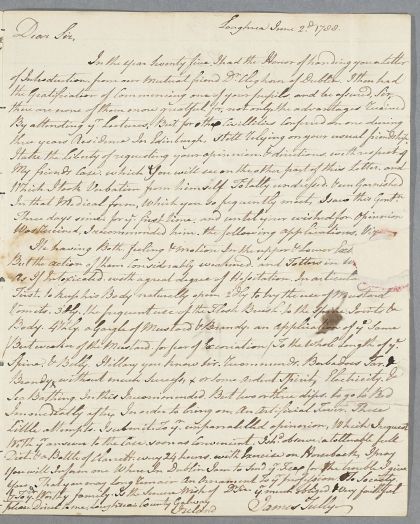 Loughrea June 2d 1788.
Dear Sir,
In the year twenty five I had the Honor of handing you a letter
of Introduction from our Mutual friend Dr Clephan of Dublin. I then had
the Gratification of Commencing one of your pupils and be assured Sir
there are none of them more grateful for not only the advantage I gained
By attending yr Lectures, But for the Civilities Confered on me during
three years Residence In Edinburgh. Still Relying on your usual friendship
I take the Liberty of requesting your opinion & directions with respect of
My friends Case which you will see on the other part of this Letter, and
Which I took Verbatim from himself Totally undigested & ungarnished
In that Medical form, Which you So frequently meet, I saw this Gentn
Three days since for ye first time, and until your wished for Opinion
Was received, I recommended him the following applications, Viz
It having Both feeling & Motion In the upper & lower
But the action of them Considerably weakened, and Totters in
As if Intoxicated with a great degree of Hesitation In articul
First. to keep his Body naturally open 2dly to by the use of Mustard
Vomits 3dly the frequent use of the Flesh Brush to the Body
Body 4thly a Gargle of Mustard & Brandy an application of ye same
But weaker of the Mustard for fear of Excoriation to the whole length of ye
Spine, & Belly. Hillary you know Sir Recommends Barbadoes Tar, &
Brandy, without much Success, & or some ardent Spirits Electricity &
Sea Bathing In this I recommended But two or three dips, & to go to Bed
Immediately after, In order to bring on an Artificial Fever. These
little attempts I submit to yr unparalleled opinion, Which I request
With yr answer to the Case soon as Convenient,
a Bottle of Claret Every 24 hours, with Exercise on Horseback, I pray
you will Inform one Whom In Dublin I am to Send yr Fees for the trouble I give
you. That you may long Remain an Ornament to yr profession to Society
& to yr Worthy family Is the Sincere Wish of Dr Sir yr much obliged & very faithful
please Direct to me, Loughrea County Galway
Ireland James Tully